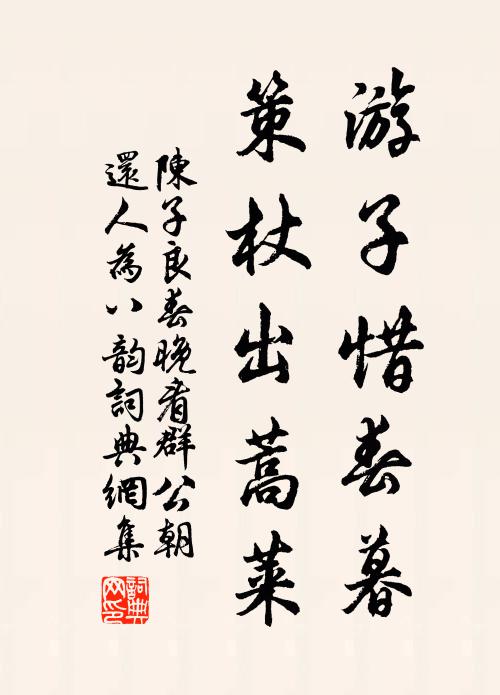 游子惜春暮
策杖出蒿萊
陳子良春晚看群公朝
還人為八韵詞典網集
詞典
网印